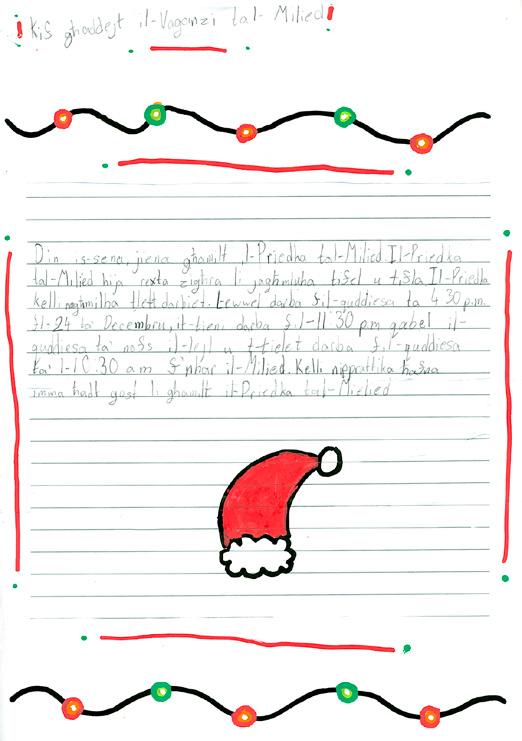 Kif għaddejt il-Vaganzi tal-Milied
Din is-sena, jiena għamilt il-Priedka tal-Milied. Il-Priedka
tal-Milied hija rexta zighra li jagħmluha tifel u tifla. Il-Priedka
kelli nagħmilha tlett darbiet. L-ewwel darba fil-quddiesa ta 4:30 p.m.
fl-24 ta' Decembru, it-tieni darba f.l-11:30 p.m qabel il-
quddiesa ta' nofs il-lejl u t-tielet darba f.il-quddiesa
ta' l-10:30 a.m f'nhar il-Milied. Kelli nipprattika ħafna
imma ħadt gost li għamilt it-Priedka tal-Mielied